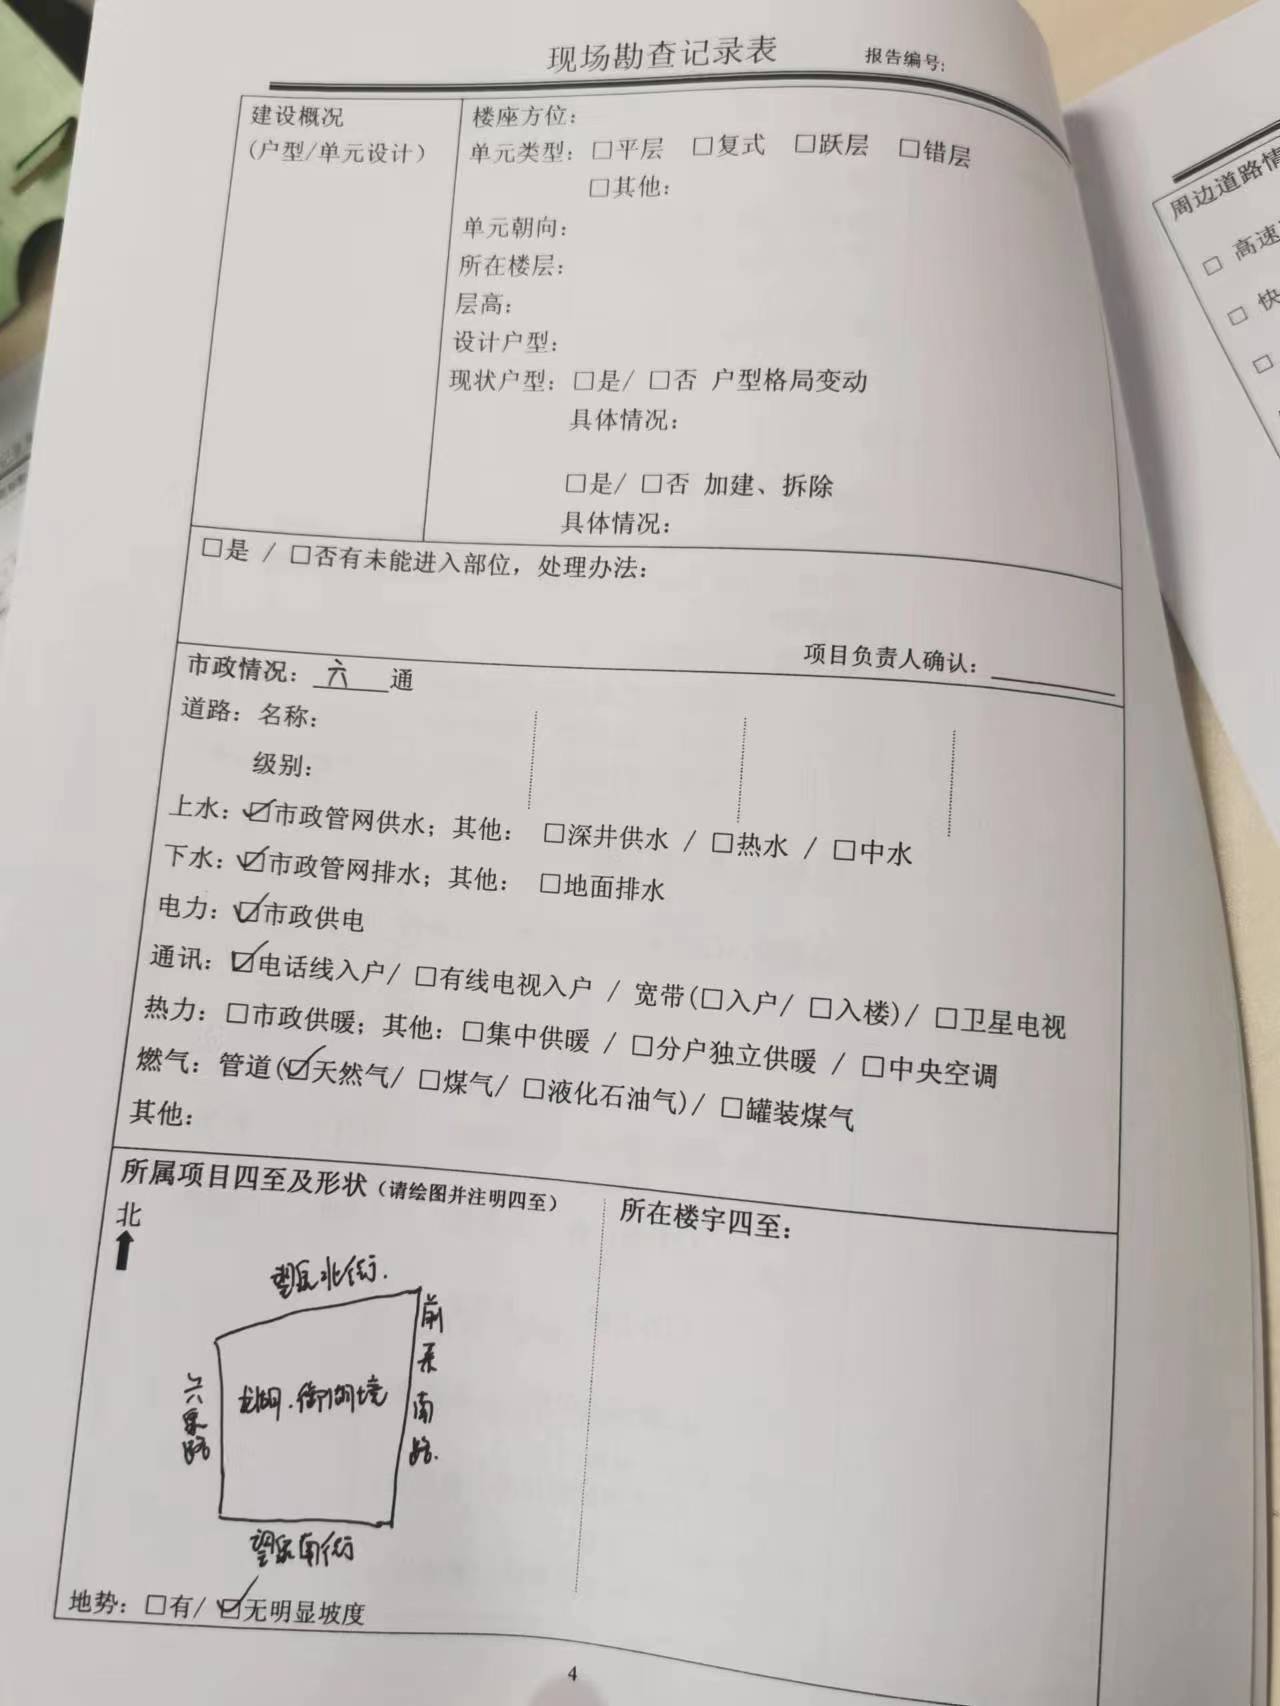 现场勘查记录表
报告编号:
建设概况
(户型/单元设计)
楼座方位:
单元类型: □平层 □复式 □跃层 □错层
□其他:
单元朝向:
所在楼层:
层高:
设计户型:
现状户型: □是/ □否 户型格局变动
具体情况:
□是/ □否 加建、拆除
具体情况:
□是 / □否有未能进入部位，处理办法:
项目负责人确认:
市政情况: 六 通
道路: 名称:
级别:
上水: ☑市政管网供水; 其他: □深井供水 / □热水 / □中水
下水: ☑市政管网排水; 其他: □地面排水
电力: ☑市政供电
通讯: ☑电话线入户/ □有线电视入户 / 宽带(□入户/ □入楼)/ □卫星电视
热力: □市政供暖; 其他: □集中供暖 / □分户独立供暖 / □中央空调
燃气: 管道(☑天然气/ □煤气/ □液化石油气)/ □罐装煤气
其他:
所属项目四至及形状 (请绘图并注明四至)
所在楼宇四至:
北
望泉北街.
前
南
路.
龙湖.御湖境
六
泉
路
望泉南街
地势: □有/ ☑无明显坡度
4
周边道路情
□ 高速
□ 快
□